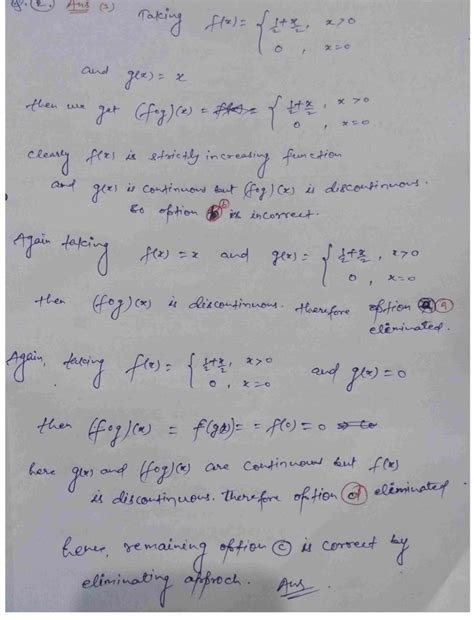 Q. 2. Ans (3)
Taking f(x) = { 1/2 + x/2, x>0
0, x=0
and g(x) = x
then we get (fog)(x) = { 1/2 + x/2, x>0
0, x=0
Clearly f(x) is strictly increasing function
and g(x) is continuous but (fog)(x) is discontinuous.
So option b is incorrect.
Again taking f(x) = x and g(x) = { 1/2 + x/2, x>0
0, x=0
then (fog)(x) is discontinuous. therefore option a
eleminated.
Again, taking f(x) = { 1/2 + x/2, x>0
0, x=0 and g(x) = 0
then (fog)(x) = f(g(x)) = = f(0) = 0
here g(x) and (fog)(x) are continuous but f(x)
is discontinuous. Therefore option d eleminated
hence, remaining option c is correct by
eliminating approch. Ans